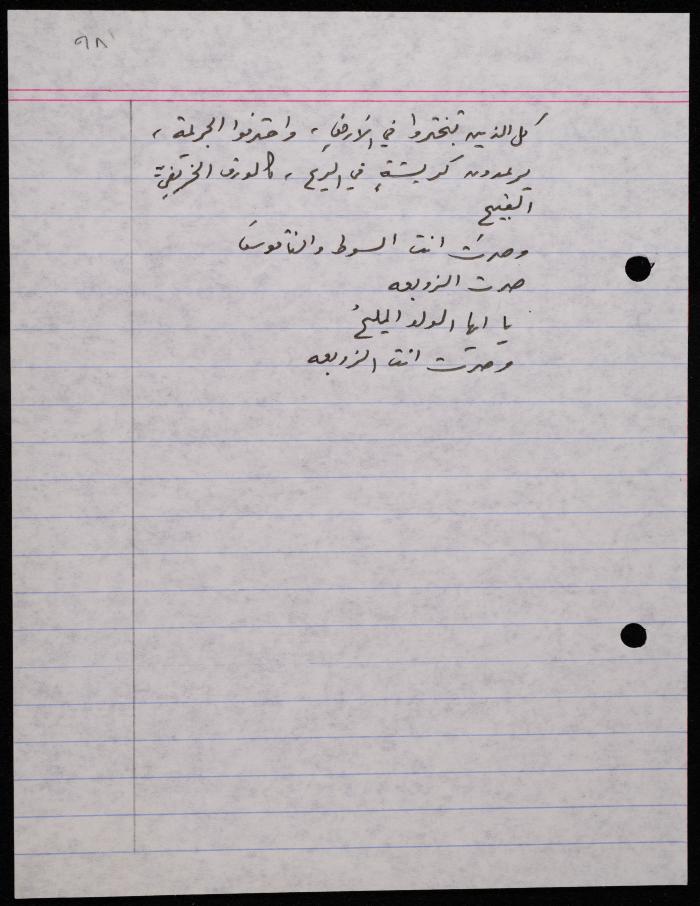 ٩٨
كل الذين تبختروا في الأرضِ، واحترفوا الجريمة،
يرعدون كريشةٍ في الريح، كالورق الخريفيّ
القبيح
وصرتَ انت السوط والناموسَ
صرت الزوبعه
يا ايها الولد المليحُ
وصرتَ انت الزوبعه